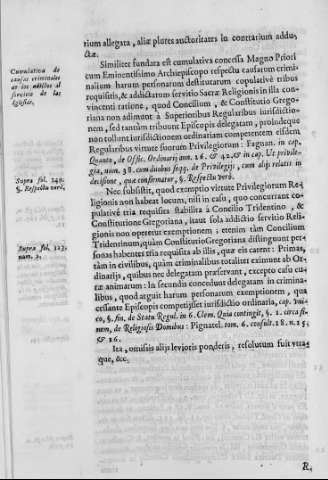 tium allegata, aliæ plures auctoritates in contrarium addu-
ctæ.
Cumulativa de
causas criminales
en los subditos al
servicio de las
Iglesias.
Similiter fundata est cumulativa concessa Magno Priori
cum Eminentissimo Archiepiscopo respectu causarum crimi-
nalium harum personarum destitutarum copulativè tribus
requisitis, & addictarum servitio Sacræ Religionis in illa con-
vincenti ratione, quod Concilium, & Constitutio Grego-
riana non adimunt à Superioribus Regularibus jurisdictio-
nem, sed tantum tribuunt Episcopis delegatam; proindeque
non tollunt jurisdictionem ordinariam competentem eisdem
Regularibus virtute suorum Privilegiorum: Fagnan. in cap.
Quanto, de Offic. Ordinarij num. 26. & 42. & in cap. Ut privile-
gia, num. 38. cum duobus seqq. de Privilegijs, cum alijs relatis in
decisione, quæ confirmatur, §. Respectu verò.
Supra fol. 249.
§. Respectu verò.
Nec subsistit, quod exemptio virtute Privilegiorum Re-
ligionis non habeat locum, nisi in casu, quo concurrant co-
pulativè tria requisita stabilita à Concilio Tridentino, &
Constitutione Gregoriana, itaut sola addictio servitio Reli-
gionis non operetur exemptionem; etenim tàm Concilium
Tridentinum, quàm Constitutio Gregoriana distinguunt per-
sonas habentes tria requisita ab illis, quæ eis carent: Primas,
tàm in civilibus, quàm criminalibus totaliter eximunt ab Or-
dinarijs, quibus nec delegatam præservant, excepto casu cu-
ræ animarum: In secundis concedunt delegatam in crimina-
libus, quod arguit harum personarum exemptionem, qua
cessante Episcopis competijsset jurisdictio ordinaria, cap. Uni-
co, §. fin. de Statu Regul. in 6. Clem. Quia contingit, §. 1. circa fi-
nem, de Religiosis Domibus: Pignatel. tom. 6. consult. 28. n. 15.
& 16.
Supra fol. 123.
num. 2.
Ita, omissis alijs levioris ponderis, resolutum fuit utra-
que, &c.
R.